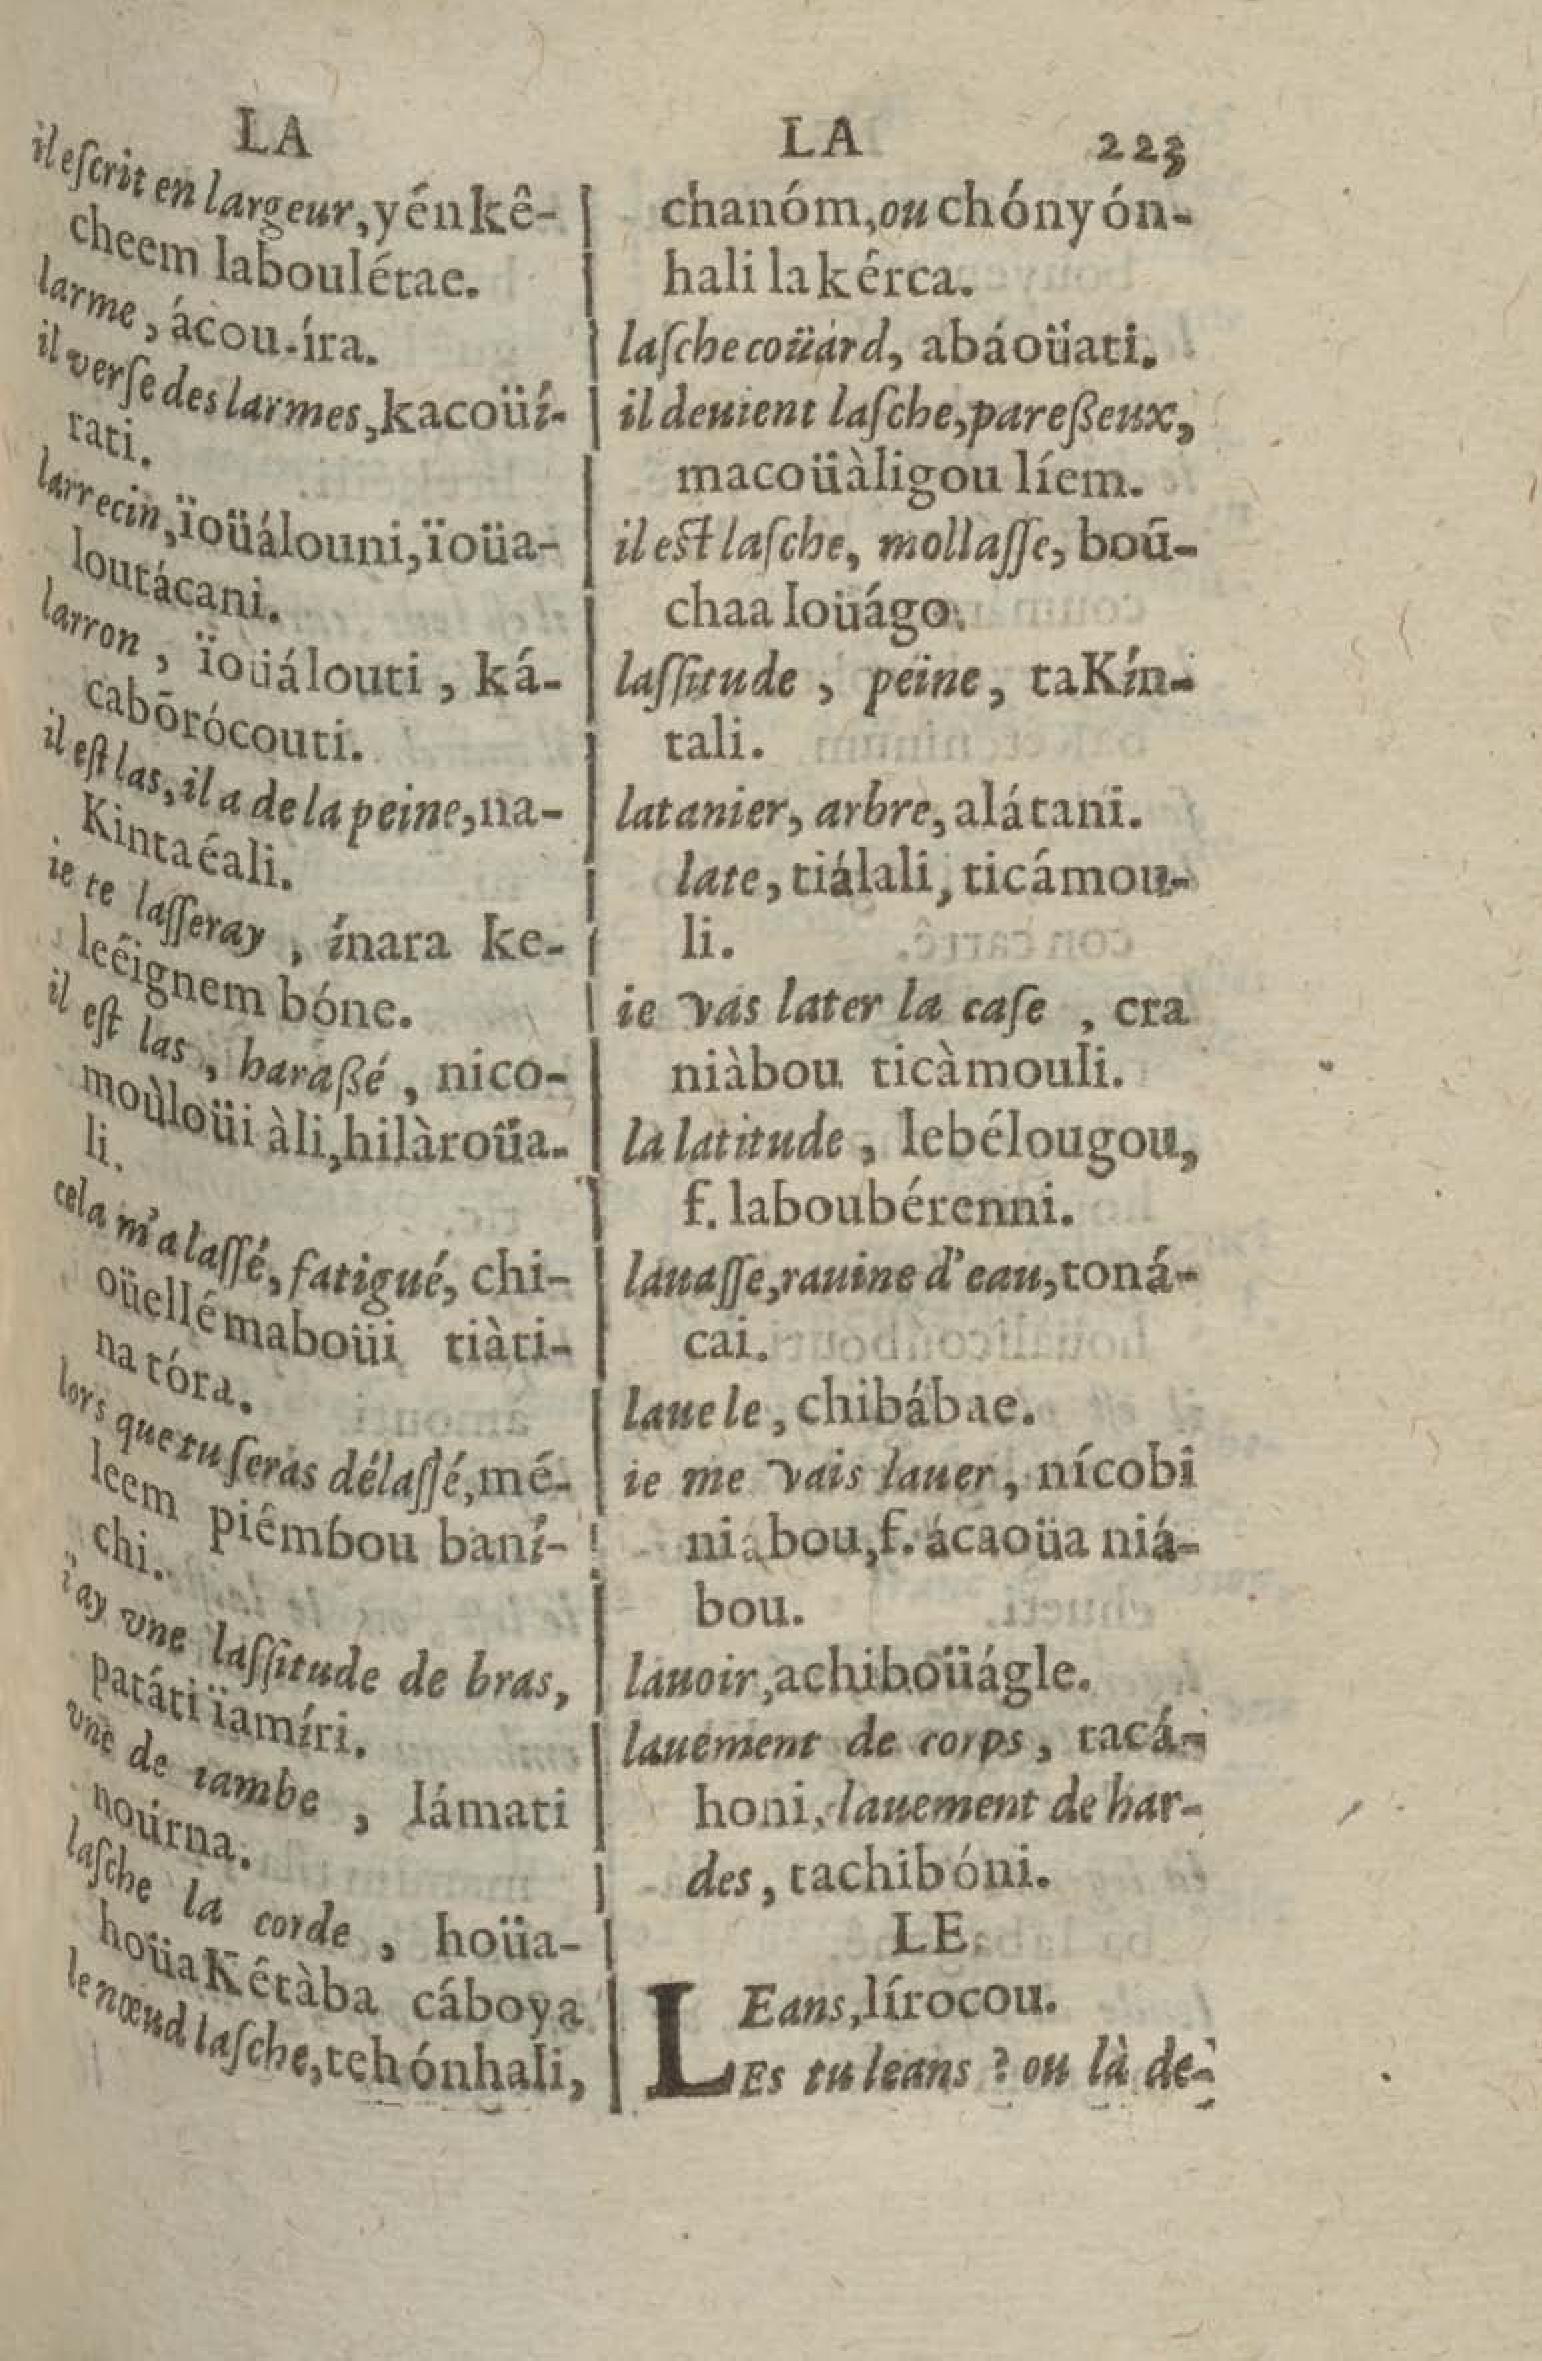 LA
il eſcrit en largeur, yénkê-
cheem laboulétae.
larme, ácou-íra.
il verſe des larmes, kacoüí-
rati.
larrecin, ïoüálouni, ïoüa-
loutácani.
larron, ïoüálouti, ká-
cabōrócouti.
il eſt las, il a de la peine, na-
Kintaéali.
ie te laſſeray, ínara ke-
leéignem bóne.
il eſt las, haraßé, nico-
moùloüi àli, hilàroüa-
li.
cela m'a laſſé, fatigué, chi-
oüellémaboüi tiàti-
na tóra.
lors que tu ſeras délaſſé, mé-
leem piêmbou baní-
chi.
i'ay vne laſſitude de bras,
patáti ïamíri.
vne de iambe, lámati
noúrna.
laſche la corde, hoüa-
hoüaKêtàba cáboya
le nœud laſche, tehónhali,
LA 223
chanóm, ou chónyón-
hali lakêrca.
laſche coüard, abáoüati.
il deuient laſche, pareßeux,
macoüàligou líem.
il eſt laſche, mollaſſe, boū-
chaa loüágo.
laſſitude, peine, taKín-
tali.
latanier, arbre, alátani.
late, tiálali, ticámou-
li.
ie vas later la caſe, cra
niàbou ticàmouli.
la latitude, lebélougou,
f. laboubérenni.
lauaſſe, rauine d'eau, toná-
cai.
laue le, chibábae.
ie me vais lauer, nícobi
niabou, f. ácaoüa niá-
bou.
lauoir, achiboüágle.
lauement de corps, tacá-
honi, lauement de har-
des, tachibóni.
LE
LEans, lírocou.
Es tu leans ? ou là de-